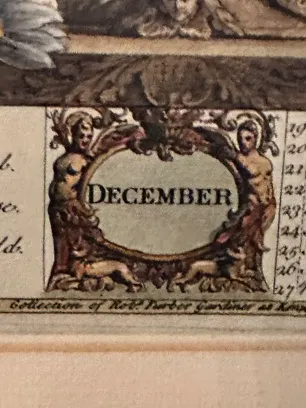 DECEMBER
b.
ld.
19
20
21
22
23
24.
25.
26.
27
Collection of Rob.t Furber Gardiner at